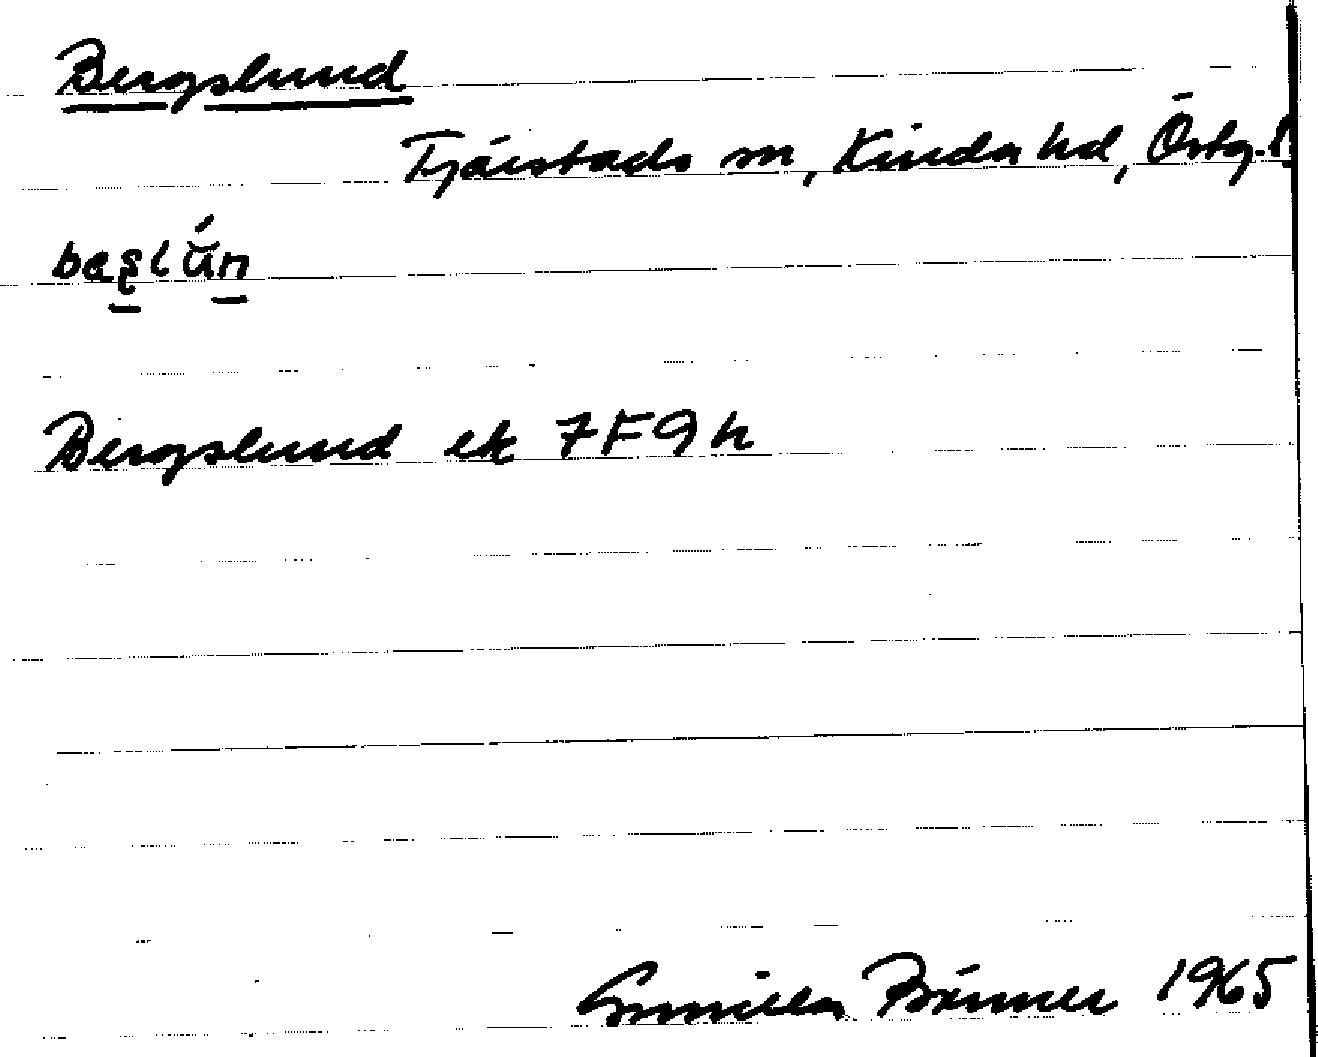 Bergslund
Tjärstads sn, Kinda hd, Östg. l
bes̥lún
Bergslund ek 7F9h
Gunilla Brånner 1965